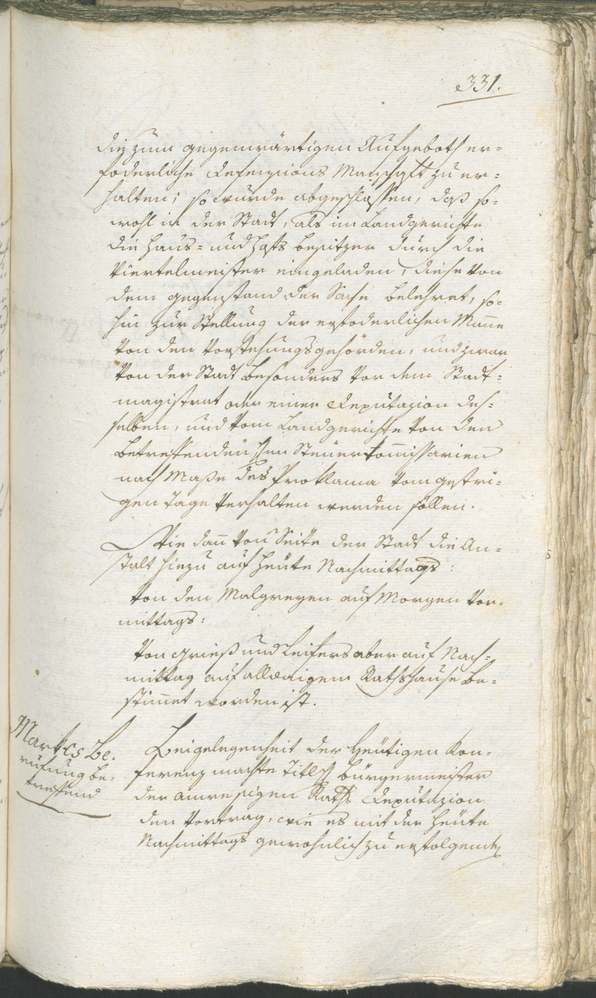 331.
die zum gegenwärtigen Aufgeboth er-
foderliche Defensions Mannschaft zu er-
halten; so wurde abgeschlossen, daß so-
wohl in der Stadt, als im Landgerichte
die Haus- und Hofs besitzer durch die
Viertelmeister eingeladen, diese von
dem gegenstand der Sache belehret, so-
hin zur Stellung der erfoderlichen Mañe
von den Vorstehungsgehörden, und zwar
von der Stadt besonders vor dem Stadt-
magistrat oder einer Deputazion des-
selben, und vom Landgerichte von den
betreffenden Steuerkom̄issarien
nach Maße des Proklama vom gestri-
gen Tage verhalten werden sollen.
Wie dan̄ von Seite der Stadt die An-
stalt hiezu auf heute Nachmittags:
von den Malgreyen auf Morgen Vor-
mittags:
von Grieß und Leifers aber auf Nach-
mittag auf alldaigem Rathshause be-
stim̄et worden ist.
Markts Be-
rufung be-
treffend
Beigelegenheit der heutigen Kon-
ferenz machte Titl. Bürgermeister
der anwesigen Raths Deputazion
den Vortrag, wie es mit der heute
Nachmittags gewohnlich zu erfolgenden